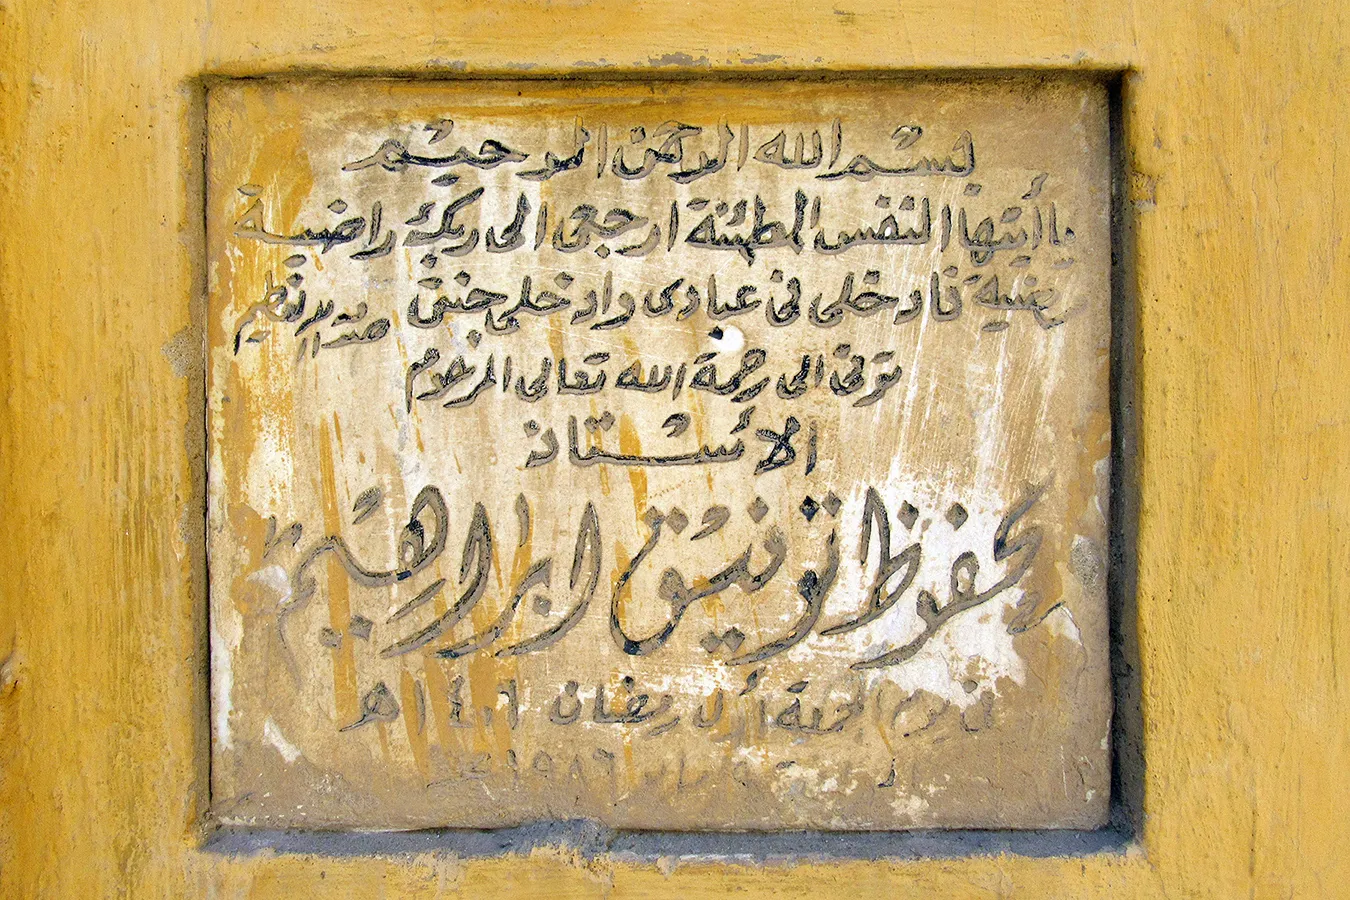 بسم الله الرحمن الرحيم
يا أيتها النفس المطئنة ارجعى الى ربك راضية
مرضية فادخلى فى عبادى وادخلى جنتى صدق الله العظيم
توفى الى رحمة الله تعالى المرحوم
الأستاذ
محفوظ توفيق ابراهيم
فى يوم الجمعة أول رمضان ١٤٠٦ هـ
٩ مايو ١٩٨٦